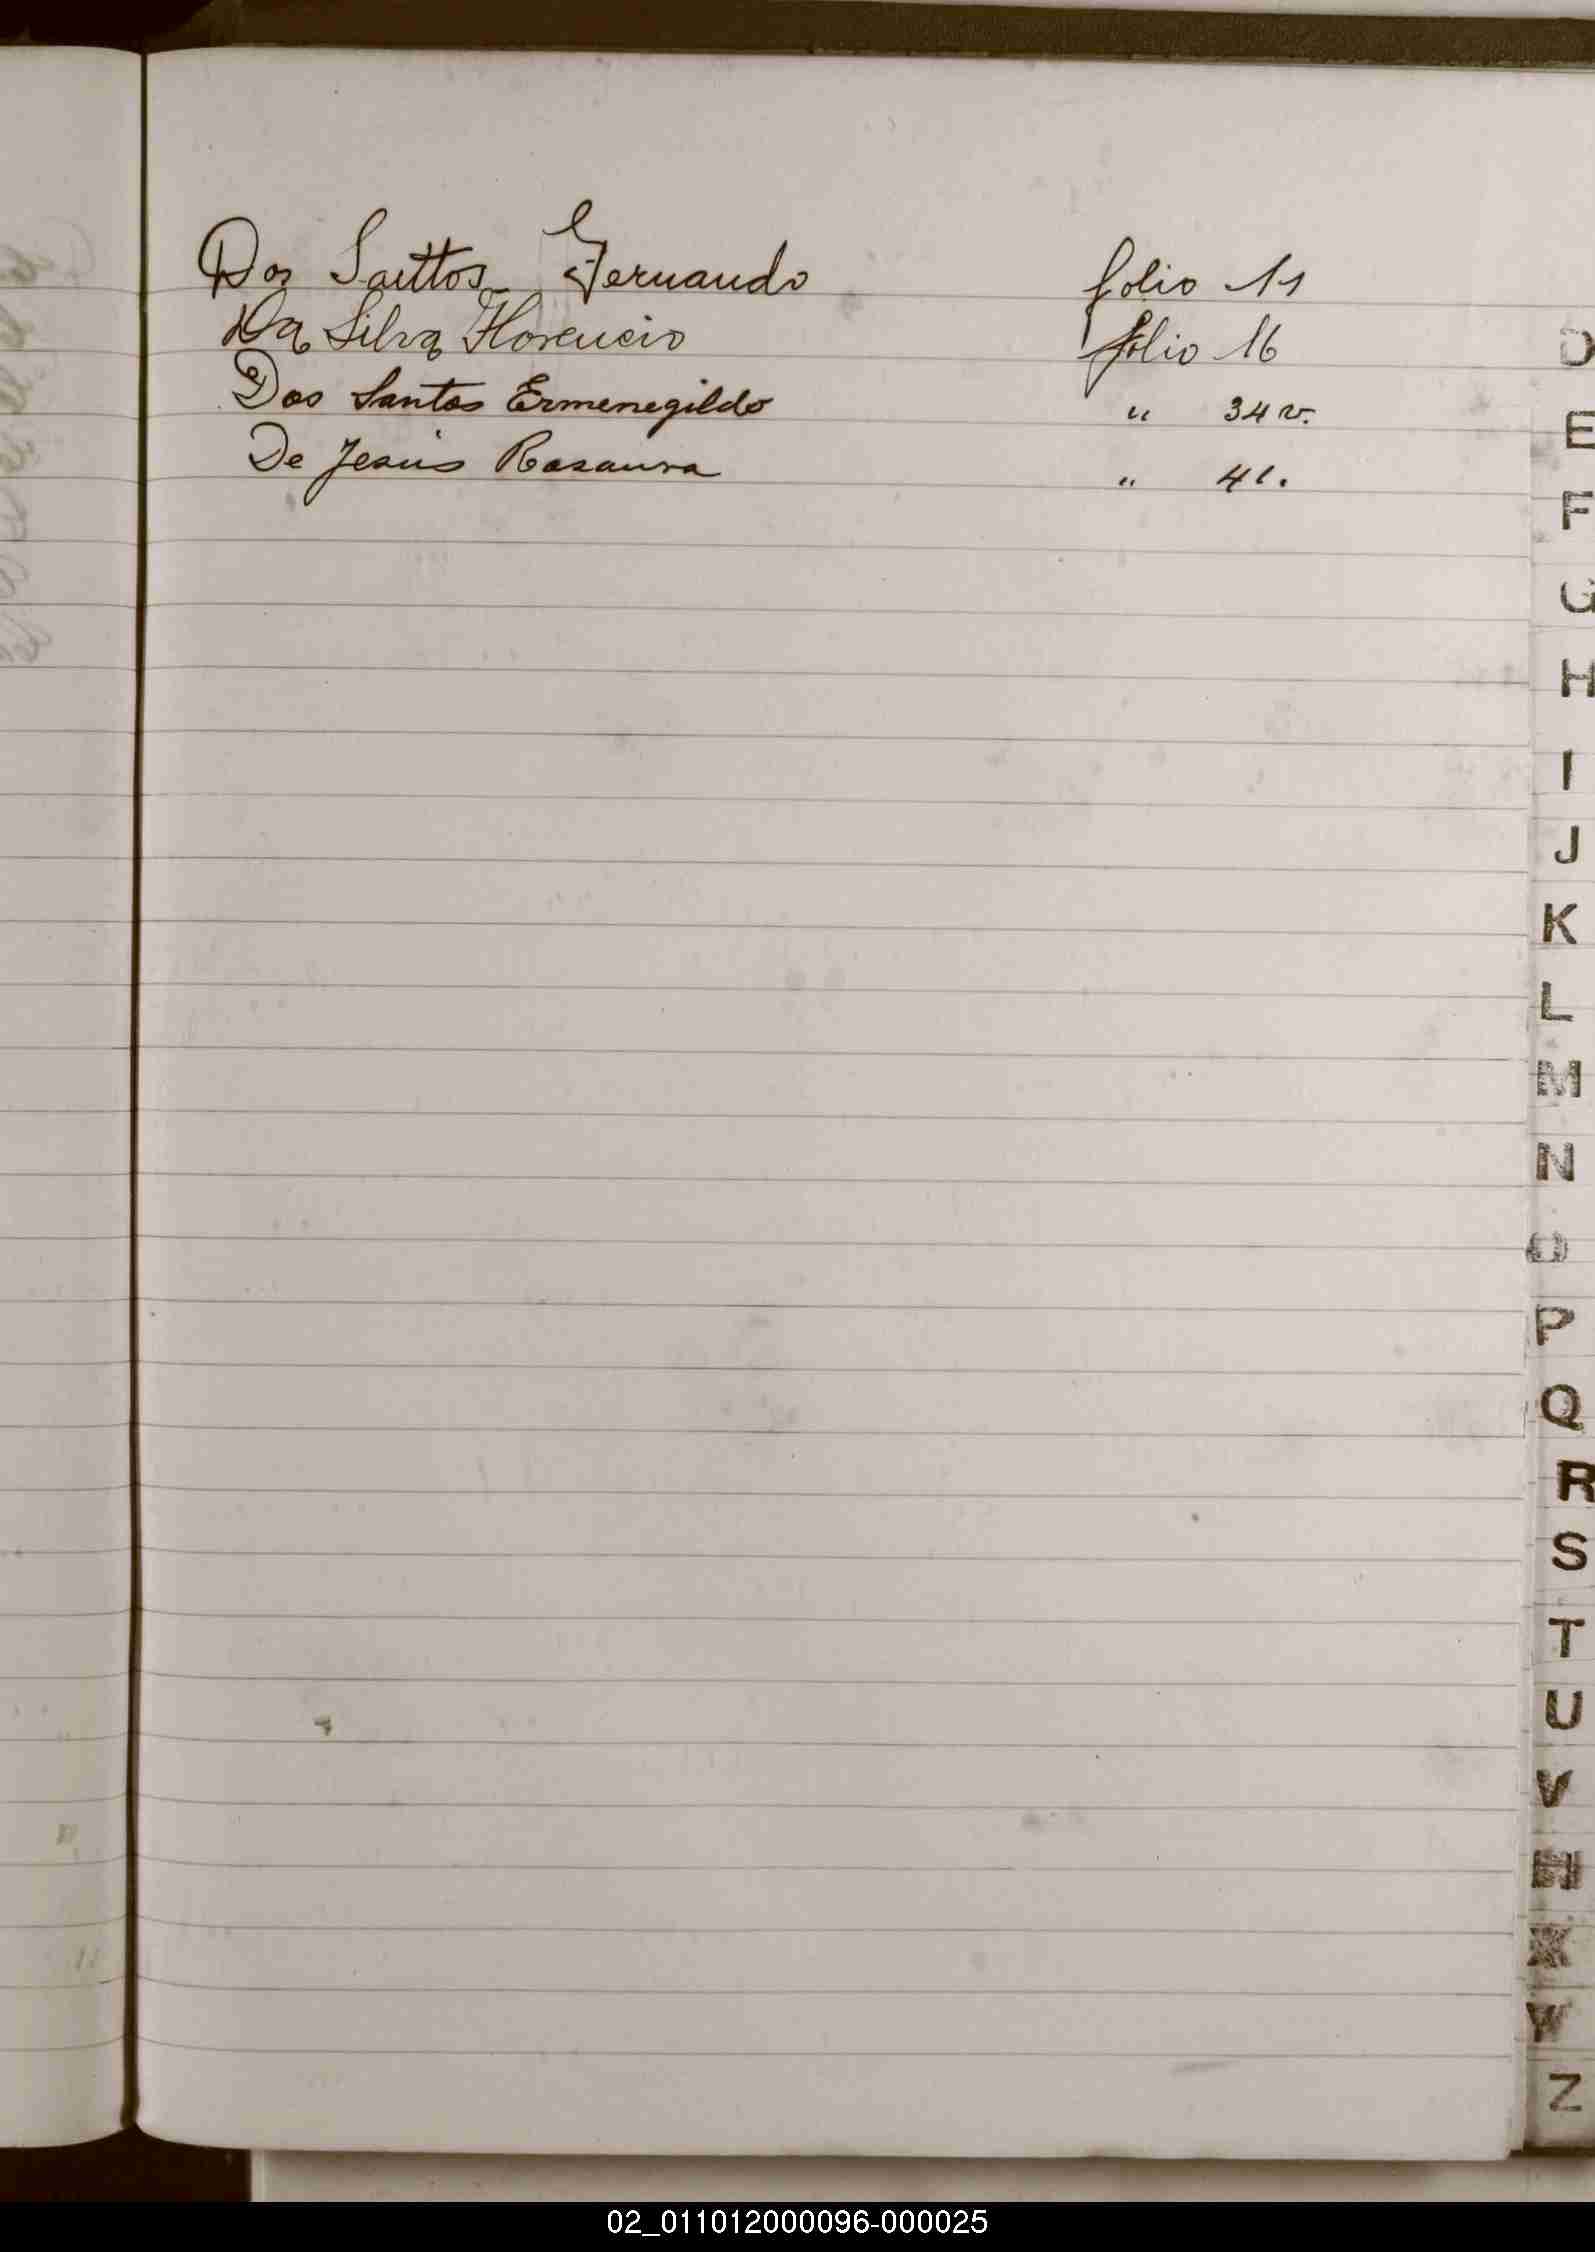 Dos Santtos Fernando folio 11
Da Silva Florencio folio 16
Dos Santos Ermenegildo " 34 v.
De Jesús Rosaura " 41.
D
E
F
G
H
I
J
K
L
M
N
O
P
Q
R
S
T
U
V
X
W
Z
02_011012000096-000025